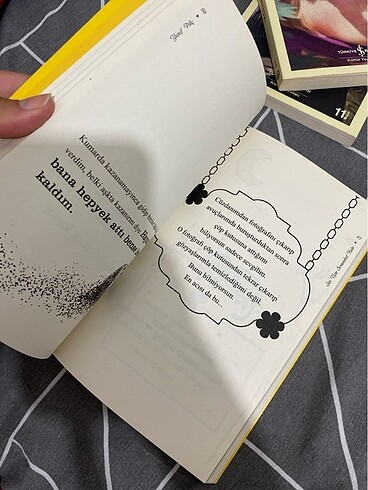 Yusuf
Kumarda kazanamayınca gidip
verdim, belki aşkta kazanırım diye.
bana hepyek attı ben
kaldım.
Cüzdanımdan fotoğrafını çıkarıp
avuçlarımda buruşturduktan sonra
çöp kutusuna attığımı
biliyorsun sadece sevgilim.
O fotoğrafı çöp kutusundan tekrar çıkarıp
gözyaşlarımla temizlediğimi değil.
Bunu bilmiyorsun.
En acısı da bu...
TÜRKİYE
Kültür
11